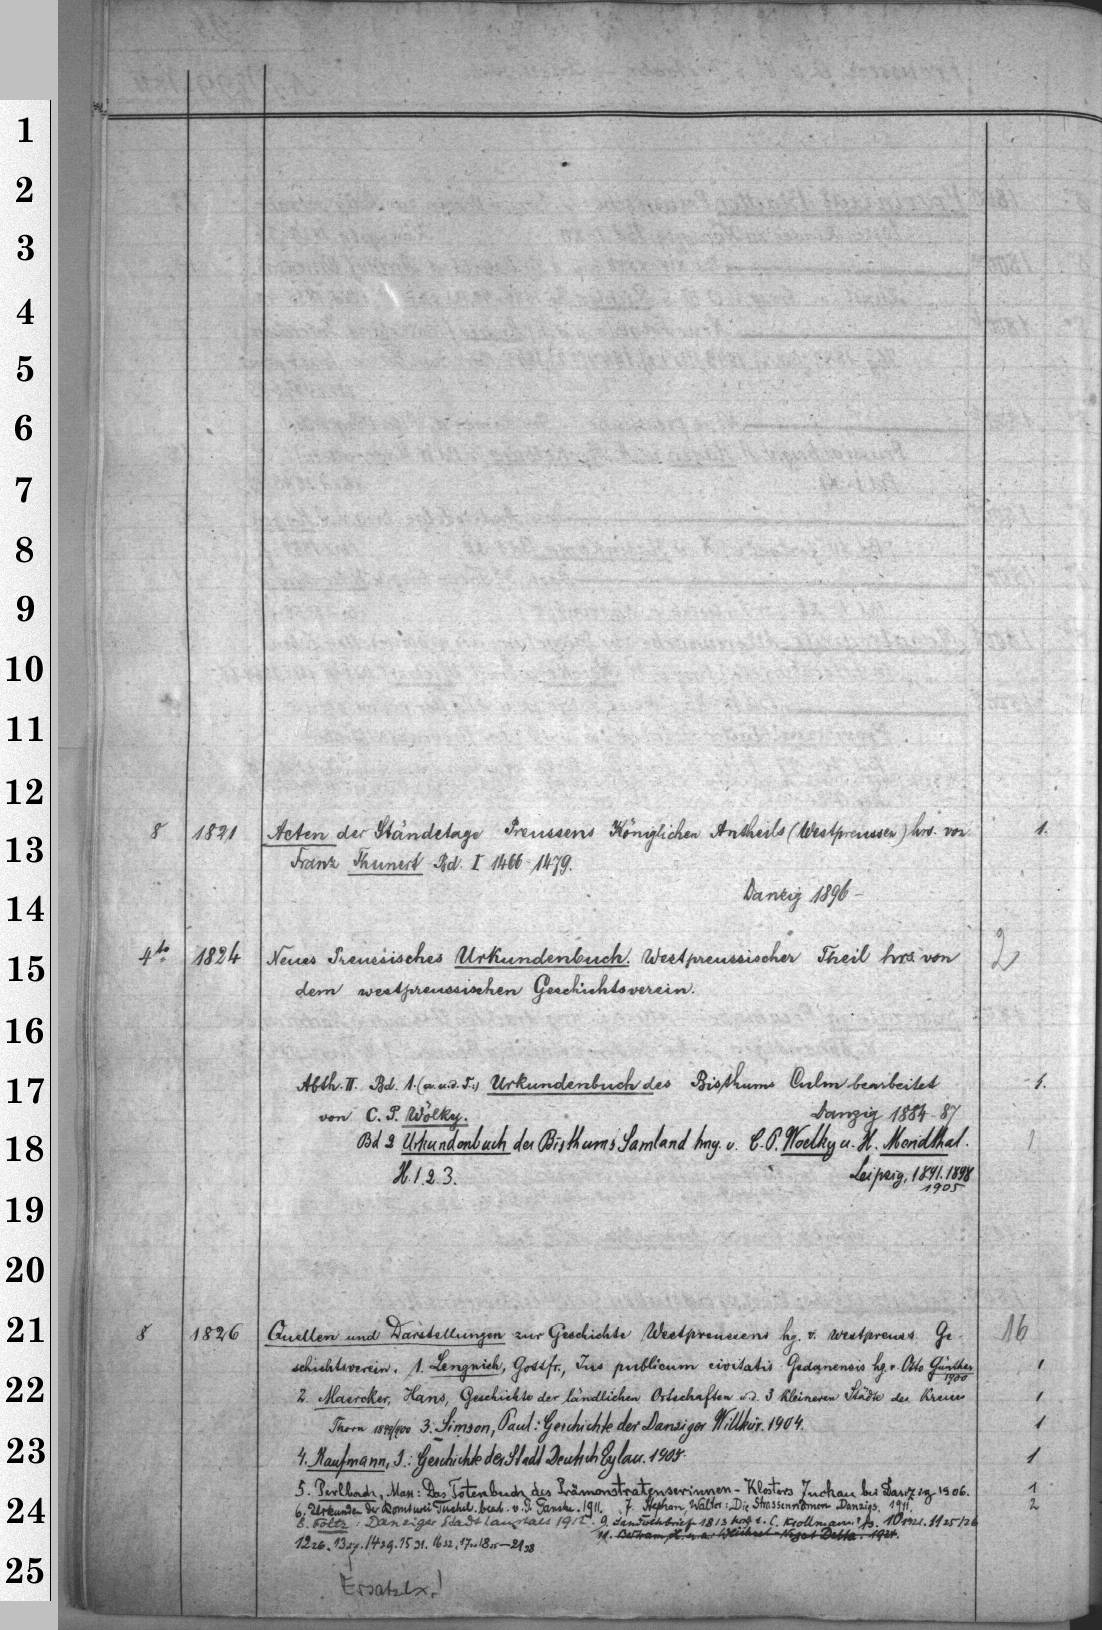 1
2
3
4
5
6
7
8
9
10
11
12
13
14
15
16
17
18
19
20
21
22
23
24
25
8 1821 Acten der Ständetage Preussens Königlichen Antheils (Westpreussen) hrs. von 1.
Franz Thunert Bd. I 1466-1479.
Danzig 1896-
4to. 1824 Neues Preussisches Urkundenbuch. Westpreussischer Theil hrs. von 2
dem westpreussischen Geschichtsverein.
Abth. II. Bd. 1. (m. u. d. T.) Urkundenbuch des Bisthums Culm bearbeitet 1.
von C. P. Wölky. Danzig 1884-87
Bd 2 Urkundenbuch des Bisthums Samland hrsg. v. C. P. Woelky u. H. Mendthal. 1
H. 1. 2. 3. Leipzig, 1891. 1898
1905
8 1826 Quellen und Darstellungen zur Geschichte Westpreussens hg. v. westpreuss. Ge- 16
schichtsverein. 1. Lengnich, Gottfr., Jus publicum civitatis Gedanensis hg. v. Otto Günther 1
1900
2. Maercker, Hans, Geschichte der ländlichen Ortschaften u. d. 3 kleineren Städte des Kreises 1
Thorn 1899/900 3. Simson, Paul: Geschichte der Danziger Willkür. 1904. 1
4. Kaufmann, J.: Geschichte der Stadt Deutsch Eylau. 1905. 1
5. Perlbach, Max: Das Totenbuch des Prämonstratenserinnen-Klosters Zuckau bei Danzig 1906. 1
6. Urkunden der Komturei Tuchel. bearb. v. P. Panske. 1911. 7. Stephan, Walter: Die Strassennamen Danzigs. 1911. 2
8. Foltz: Danziger Stadthaushalt 1912. 9. Landwehrbriefe 1813 hrsg. v. C. Krollmann. 1925/26
11. Bertram, H. u. a. Weichsel-Nogat Delta. 1924.
Ersatzex.!